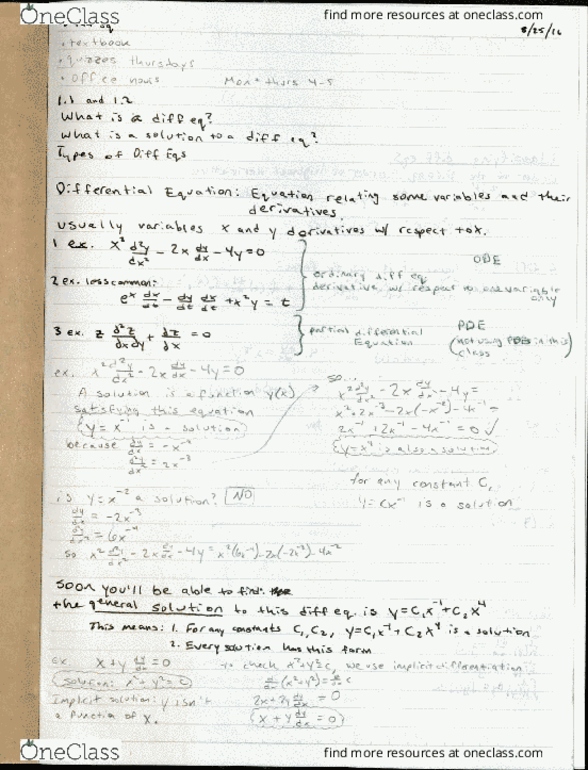 OneClass
find more resources at oneclass.com
8/25/16
• textbook
• quizzes thursdays
• office hours Mon + thurs 4-5
1.1 and 1.2
What is a diff eq?
What is a solution to a diff eq?
Types of Diff Eqs
Differential Equation: Equation relating some variables and their
derivatives.
Usually variables x and y derivatives w/ respect to x.
1 ex. x² d²y/dx² - 2x dy/dx - 4y = 0
ODE
ordinary diff eq.
derivative w/ respect to one variable
only
2 ex. less common:
eˣ dx/dt - dy/dt dx/dt + x²y = t
3 ex. z d²z/dxdy + dz/dx = 0
partial differential
Equation
PDE
(not using PDEs in this
class)
ex. x² d²y/dx² - 2x dy/dx - 4y = 0
A solution is a function y(x)
satisfying this equation
y = x⁻¹ is a solution
because dy/dx = -x⁻²
d²y/dx² = 2x⁻³
so...
x² d²y/dx² - 2x dy/dx - 4y =
x²·2x⁻³ - 2x(-x⁻²) - 4x⁻¹ =
2x⁻¹ + 2x⁻¹ - 4x⁻¹ = 0 ✓
y = x⁴ is also a solution
for any constant C,
y = Cx⁻¹ is a solution
is y = x⁻² a solution? NO
dy/dx = -2x⁻³
d²y/dx² = 6x⁻⁴
so x² d²y/dx² - 2x dy/dx - 4y = x²(6x⁻⁴) - 2x(-2x⁻³) - 4x⁻²
Soon you'll be able to find:
the general solution to this diff eq. is y = C₁x⁻¹ + C₂x⁴
This means: 1. For any constants C₁, C₂, y = C₁x⁻¹ + C₂x⁴ is a solution
2. Every solution has this form
ex. x + y dy/dx = 0
solution: x² + y² = C
Implicit solution: y isn't
a function of x.
to check x² + y² = c, we use implicit differentiation:
d/dx (x² + y²) = d/dx c
2x + 2y dy/dx = 0
x + y dy/dx = 0
OneClass
find more resources at oneclass.com